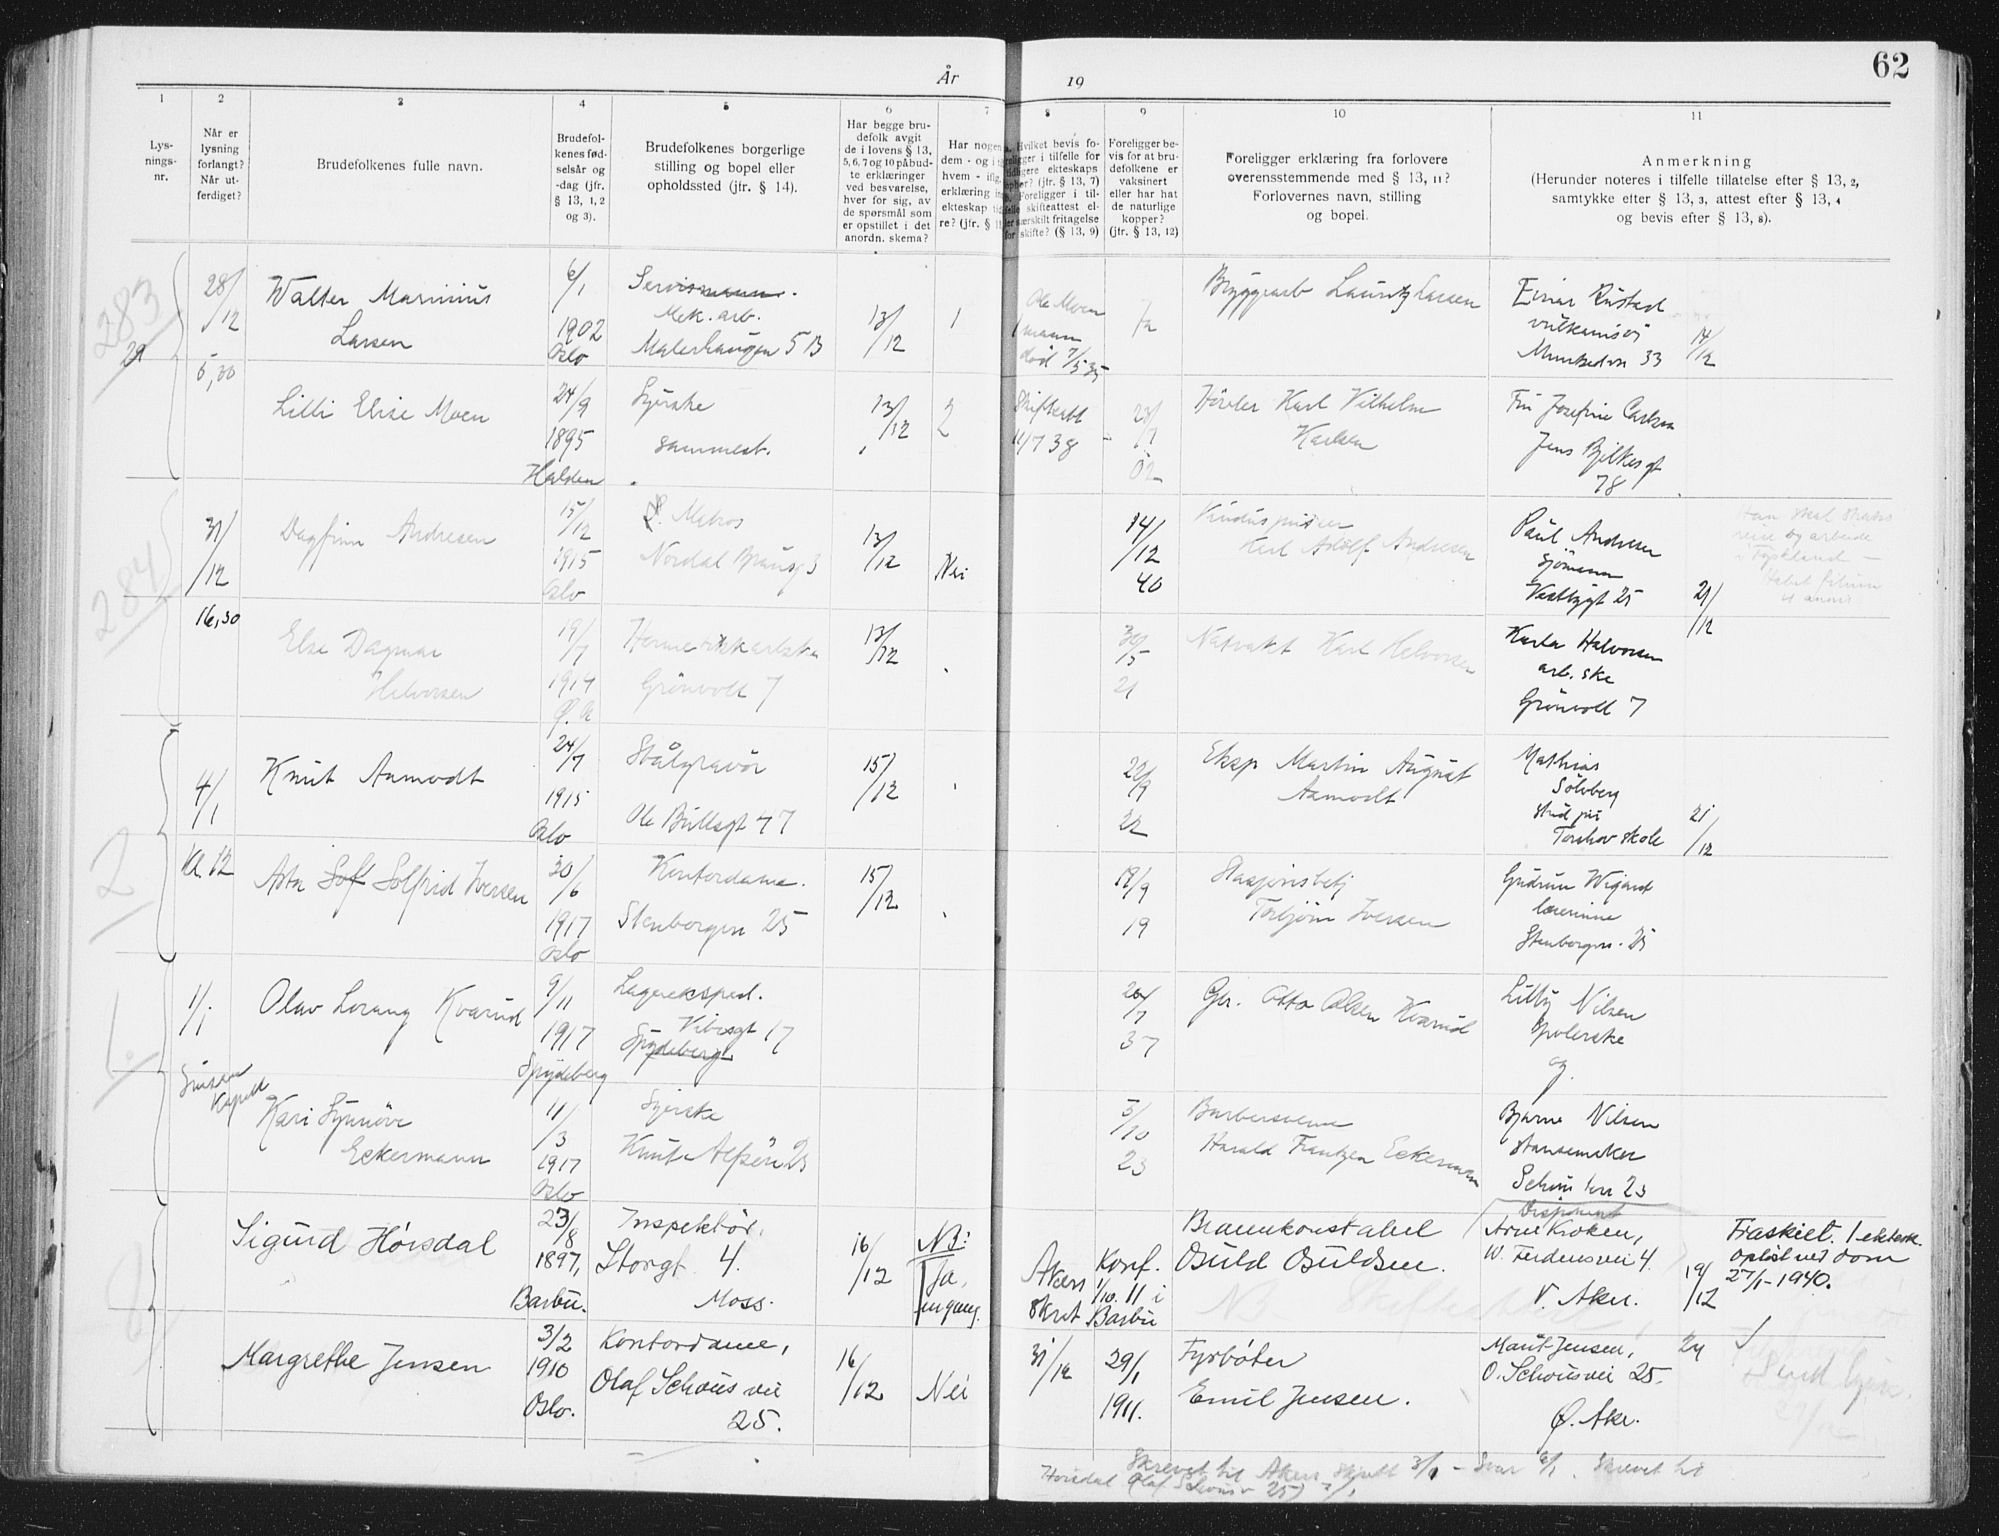 År
19
62
1
2
3
4
5
6
7
8
9
10
11
Lys-
nings-
nr.
Når er
lysning
forlangt?
Når ut-
ferdiget?
Brudefolkenes fulle navn.
Brudefol-
kenes fød-
selsår og
-dag (jfr.
§ 13, 1, 2
og 3).
Brudefolkenes borgerlige
stilling og bopel eller
opholdssted (jfr. § 14).
Har begge bru-
defolk avgit
de i lovens § 13,
5, 6, 7 og 10 påbud-
te erklæringer
ved besvarelse,
hver for sig, av
de spørsmål som
er opstillet i det
anordn. skema?
Har nogen
dem - og i
hvem - iflg.
erklæring in
ekteskap tid
re? (jfr. § 1
Hvilket bevis fo-
religger i tilfelle for
tidligere ekteskaps
ophør? (jfr. § 13, 7)
Foreligger i til-
felle skifteattest el-
ler særskilt fritagelse
for skifte? (§ 13, 9)
Foreligger be-
vis for at bru-
defolkene er
vaksinert
eller har hat
de naturlige
kopper?
(jfr. § 13, 12)
Foreligger erklæring fra forlovere
overensstemmende med § 13, 11?
Forlovernes navn, stilling
og bopel.
Anmerkning
(Herunder noteres i tilfelle tillatelse efter § 13, 2,
samtykke efter § 13, 3, attest efter § 13, 4
og bevis efter § 13, 8).
283
29
28/12
5,30
Walter Marinius
Larsen
6/1
1902
Oslo
Servismann.
Mek. arb.
Malerhaugen 5 B
13/12
1
Ole Moen
mann
død 7/5 35
Bryggearb Lauritz Larsen
Einar Rustad
Munkedvn 33
14/12
Lilli Elise Moen
24/9
1895
Halden
Syerske
sammest.
13/12
2
Skifteatt
11/7 38
23/7
02
Karl Vilhelm
Karlsen
Fru Josefine Carlsen
Jens Bjelkesgt
78
284
31/12
16,30
Dagfinn Andresen
15/12
1915
Oslo
Matros
Nordal Brunsg 3
13/12
Nei
14/12
40
Karl Adolf Andresen
Paul Andresen
sjømann
25
21/12
Han skal straks
reise og arbeide
i Tyskland
Else Dagmar
Halvorsen
19/7
1914
Ø. A
Grönvoll 7
13/12
30/5
21
Natvakt Karl Halvorsen
Karla Halvorsen
arb. ske
Grönvoll 7
2
4/1
Kl. 12
Knut Aamodt
24/7
1915
Oslo
Stålgravör
Ole Bullsgt 47
15/12
22/9
22
Eksp Martin August
Aamodt
Mathias
Solberg
Torshov skole
21/12
Asta Sof Solfrid Iversen
30/6
1917
Oslo
Kontordame.
Stenborggn 25
15/12
19/9
19
Stasjonsbetj
Torbjörn Iversen
Gudrun Wigand
lærerinne
Stenborggn. 25
1.
1/1
Sinsen
Kapell
Olav Lorang Kvarud
9/11
1917
Spydeberg
Lagereksped.
Vibesgt 17
Spydeberg
24/7
37
Gbr. Otto Olsen Kvarud
Lilly Nilsen
Spolerske
og
Kari Synnöve
Eckermann
11/3
1917
Oslo
Syerske
Knut Alfsönv 23
5/10
23
Barbersvenn
Harald Frantzen Eckermann
Bjarne Nilsen
Sigurd Hørsdal
23/8
1897,
Barbu.
Inspektør,
Storgt 4.
Moss.
16/12
NB!
Ja,
1 engang.
Akers
skret
Konf.
1/10. 11 i
Barbu
Brannkonstabel
Osuld Osuldsen.
NB
Disponent
Arne Kroken,
W. Ferdensvei 4.
V. Aker.
19/12
Fraskilt. 1 ektesk.
opløst ved dom
27/1-1940.
Margrethe Jensen
3/2
1910
Oslo.
Kontordame,
Olaf Schous vei
25.
16/12
Nei
31/12
29/1
1911.
Fyrbøter
Emil Jensen.
Marit Jensen,
O. Schousvei 25.
Ø. Aker.
Skrevet til Akers 3/1 - Svar 6/1. Skrevet til
Horsdal Olaf Schous v 25)